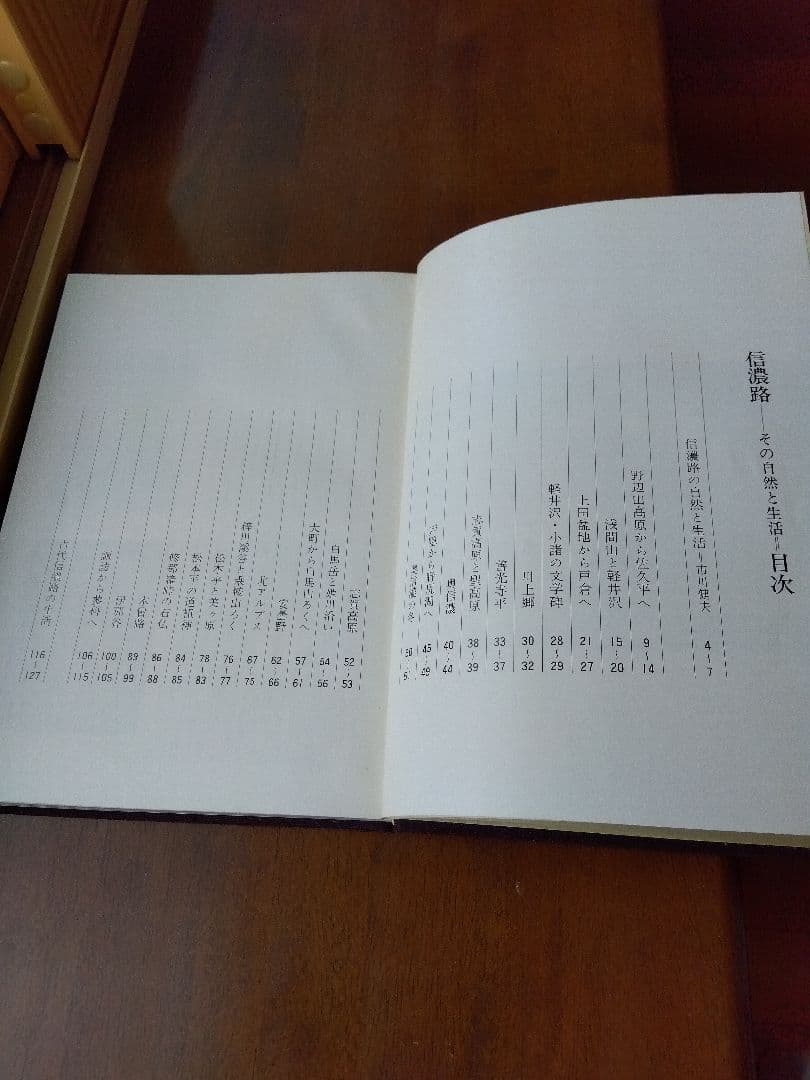 信濃路——その自然と生活=目次
信濃路の自然と生活=市川健夫 4〜7
野辺山高原から佐久平へ 9〜14
浅間山と軽井沢 15〜20
上田盆地から戸倉へ 21〜27
軽井沢・小諸の文学碑 28〜29
川上郷 30〜32
善光寺平 33〜37
志賀高原と奥高原 38〜39
奥信濃 40〜44
45〜49
50〜51
志賀高原 52〜53
白馬岳と姫川沿い 54〜56
大町から白馬山ろくへ 57〜61
安曇野 62〜66
北アルプス 67〜75
梓川渓谷と乗鞍山ろく 76〜77
松本平と美ヶ原 78〜83
松本平の道祖神 84〜85
修那羅峠の石仏 86〜88
木曽路 89〜99
伊那谷 100〜105
諏訪から 106〜115
古代信濃路の生活 116〜127